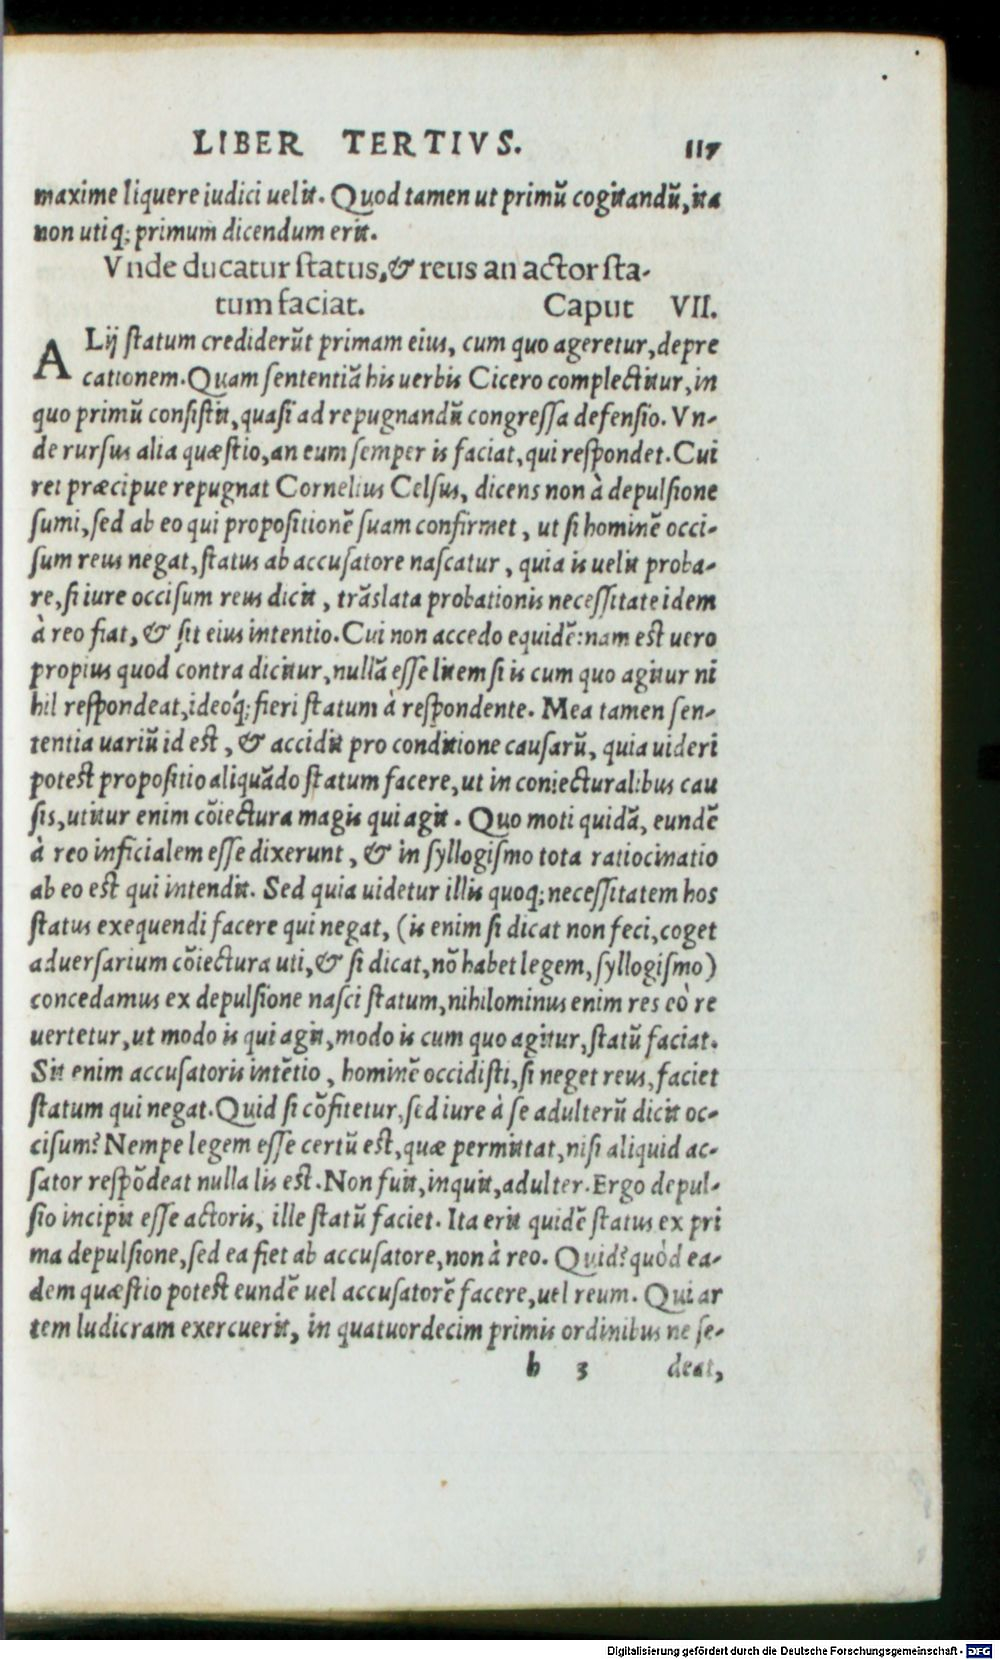 LIBER TERTIVS. 117
maxime liquere iudici uelit. Quod tamen ut primũ cogitandũ, ita
non utiq; primum dicendum erit.
Vnde ducatur status, & reus an actor sta-
tum faciat. Caput VII.
ALij statum crediderũt primam eius, cum quo ageretur, depre
cationem. Quam sententiã his uerbis Cicero complectitur, in
quo primũ consistit, quasi ad repugnandũ congressa defensio. Vn-
de rursus alia quæstio, an eum semper is faciat, qui respondet. Cui
rei præcipue repugnat Cornelius Celsus, dicens non à depulsione
sumi, sed ab eo qui propositionẽ suam confirmet, ut si hominẽ occi-
sum reus negat, status ab accusatore nascatur, quia is uelit proba-
re, si iure occisum reus dicit, trãslata probationis necessitate idem
à reo fiat, & sit eius intentio. Cui non accedo equidẽ: nam est uero
propius quod contra dicitur, nullã esse litem si is cum quo agitur ni
hil respondeat, ideoq́; fieri statum à respondente. Mea tamen sen-
tentia uariũ id est, & accidit pro conditione causarũ, quia uideri
potest propositio aliquãdo statum facere, ut in coniecturalibus cau
sis, utitur enim cõiectura magis qui agit. Quo moti quidã, eundẽ
à reo inficialem esse dixerunt, & in syllogismo tota ratiocinatio
ab eo est qui intendit. Sed quia uidetur illis quoq; necessitatem hos
status exequendi facere qui negat, (is enim si dicat non feci, coget
aduersarium cõiectura uti, & si dicat, nõ habet legem, syllogismo)
concedamus ex depulsione nasci statum, nihilominus enim res eò re
uertetur, ut modo is qui agit, modo is cum quo agitur, statũ faciat.
Sit enim accusatoris intẽtio, hominẽ occidisti, si neget reus, faciet
statum qui negat. Quid si cõfitetur, sed iure à se adulterũ dicit oc-
cisum? Nempe legem esse certũ est, quæ permittat, nisi aliquid ac-
sator respõdeat nulla lis est. Non fuit, inquit, adulter. Ergo depul-
sio incipit esse actoris, ille statũ faciet. Ita erit quidẽ status ex pri
ma depulsione, sed ea fiet ab accusatore, non à reo. Quid? quòd ea-
dem quæstio potest eundẽ uel accusatorẽ facere, uel reum. Qui ar
tem ludicram exercuerit, in quatuordecim primis ordinibus ne se-
h 3 deat,
Digitalisierung gefördert durch die Deutsche Forschungsgemeinschaft - DFG